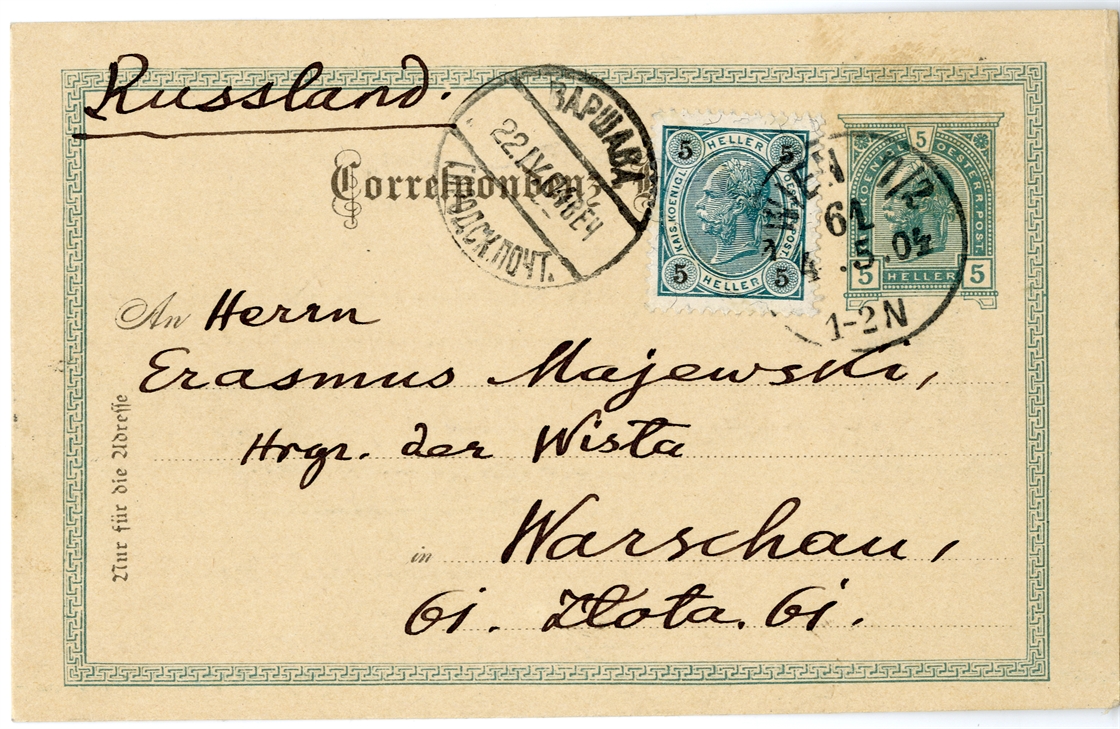 Russland.
Correspondenz-
ВАРШАВА
22.IV.04
ГОРОДСК.ПОЧТ.
5 HELLER 5
KAIS. KOENIGL.
OESTERR. POST.
5 HELLER 5
5
KAIS. KOENIGL. OESTERR. POST.
5 HELLER 5
WIEN 1/2
61
4.5.04
1-2N
An Herrn
Erasmus Majewski,
Hrgr. der Wisła
in Warschau,
61. Złota. 61.
Nur für die Adresse